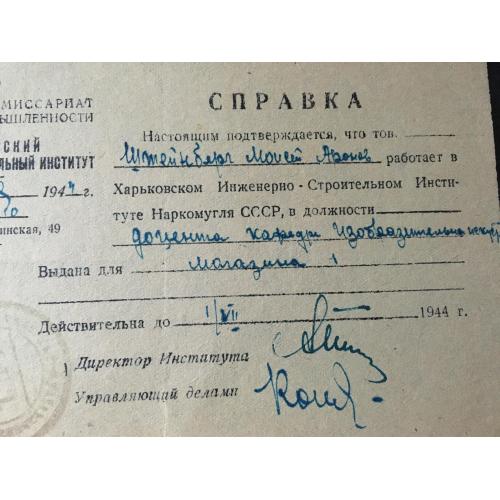 МИССАРИАТ
ЫШЛЕННОСТИ
СКИЙ
ЛЬНЫЙ ИНСТИТУТ
194 г.
инская, 49
СПРАВКА
Настоящим подтверждается, что тов.
Штейнберг Моисей Аронов работает в
Харьковском Инженерно-Строительном Инсти-
туте Наркомугля СССР, в должности
доцента кафедры Изобразительно искус
Выдана для магазина
Действительна до 1/VII 1944 г.
Директор Института
Управляющий делами